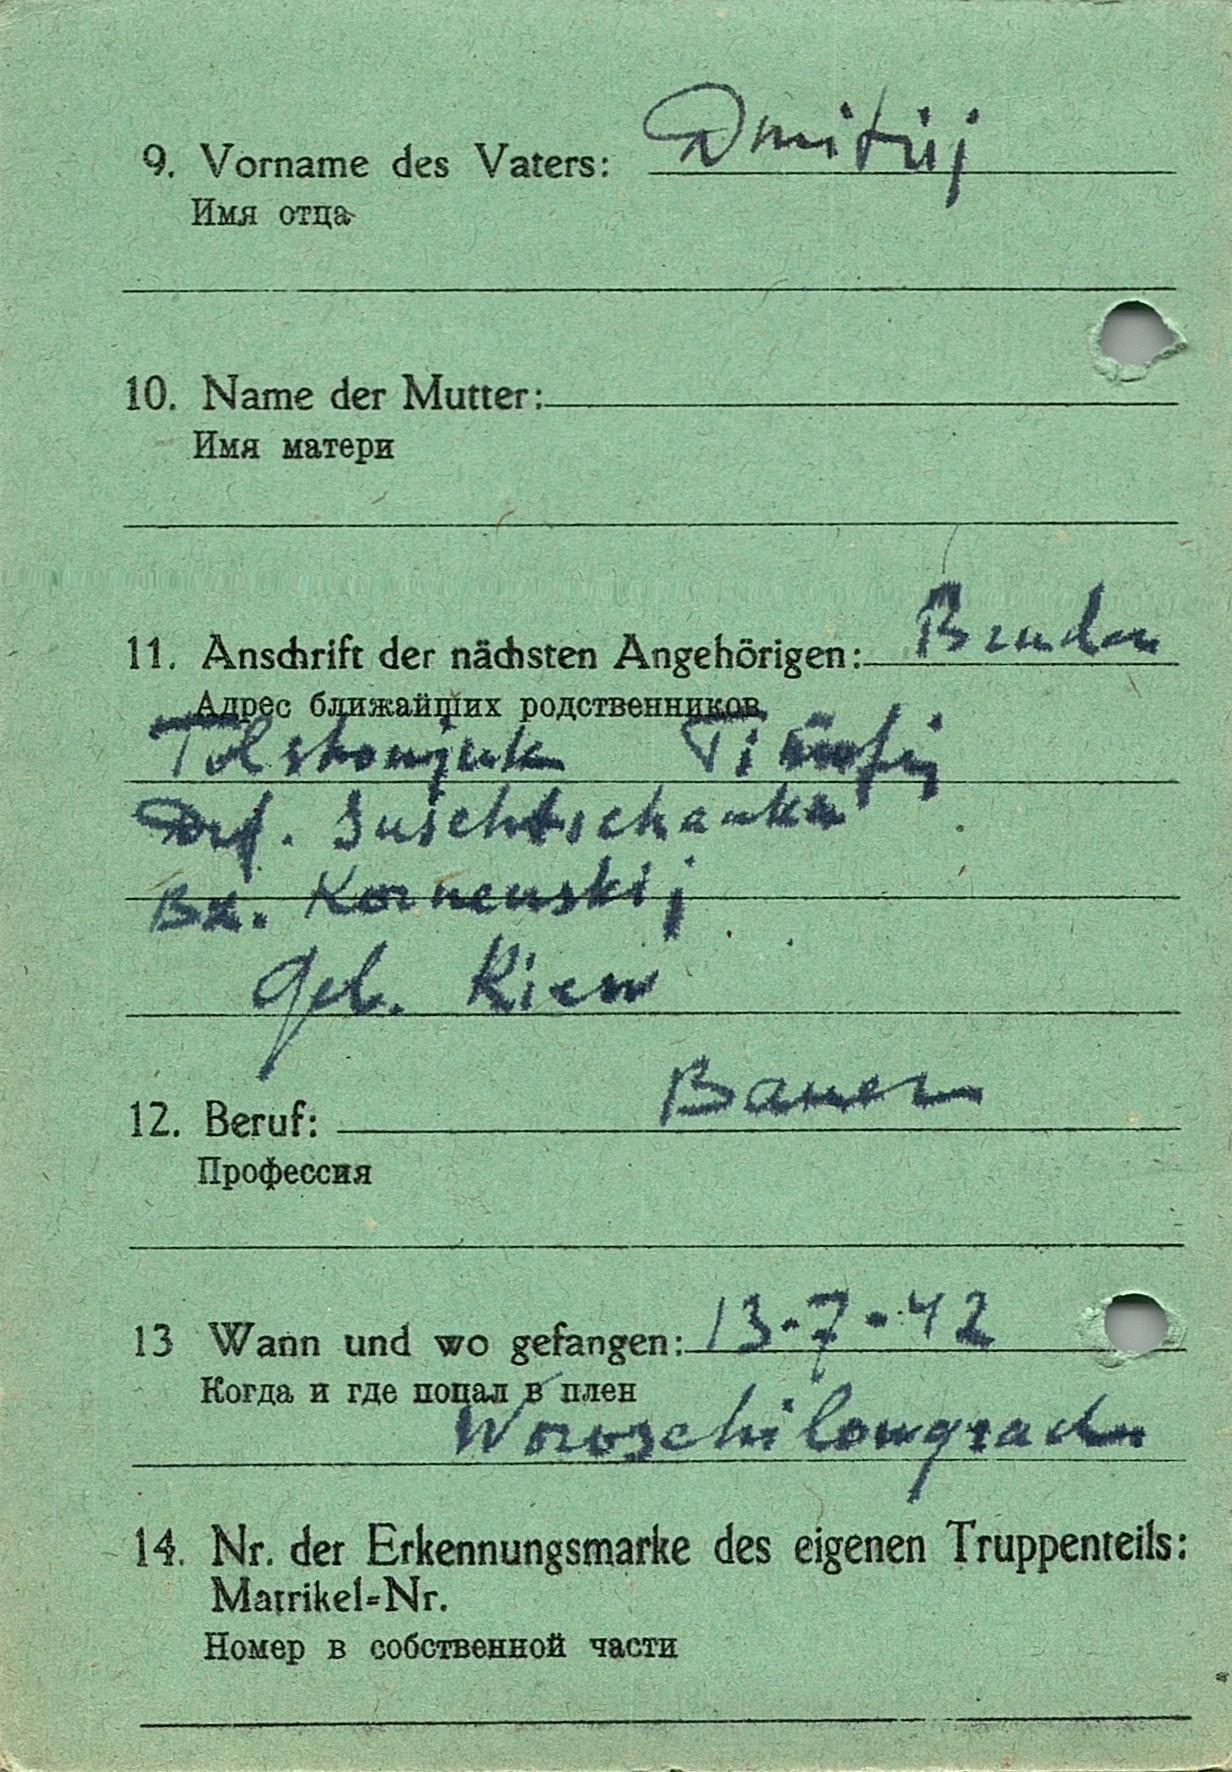 9. Vorname des Vaters: Dmitrij
Имя отца
10. Name der Mutter:
Имя матери
11. Anschrift der nächsten Angehörigen: Bruder
Адрес ближайших родственников
Timofij
Drf.
Bz. Kornenskij
Geb. Kiew
12. Beruf: Bauer
Профессия
13 Wann und wo gefangen: 13.7.42
Когда и где попал в плен
Woroschilowgrad
14. Nr. der Erkennungsmarke des eigenen Truppenteils:
Matrikel=Nr.
Номер в собственной части